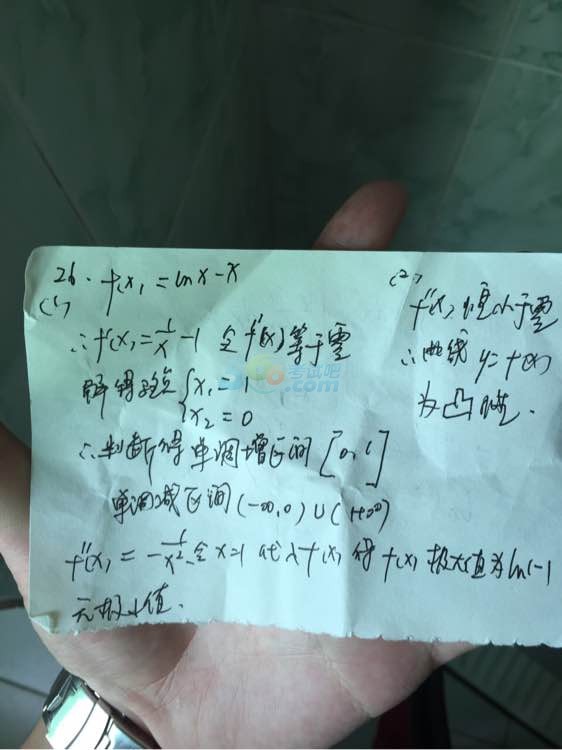 26. f(x) = lnx-x
(1)
∴f'(x)=1/x -1 令f'(x)等于零
解得驻点{x₁=1
x₂=0
∴判断得单调增区间[0,1]
单调减区间(-∞,0)∪(1+∞)
f''(x)=-1/x² 令x=1代入f(x)得f(x)极大值为ln1-1
无极小值.
(2)
f''(x)恒小于零
∴曲线y=f(x)
为凸
考试吧
.com